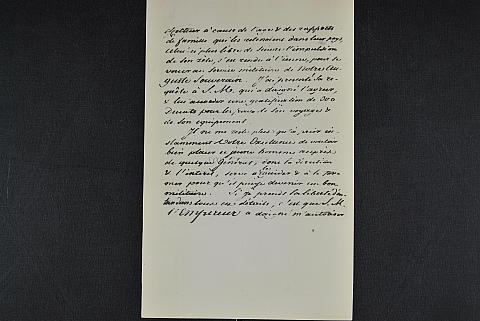 à cause de l'age & des rapports
de famille qui les retiennent dans leur pays,
celui ci plus libre de suivre l'impulsion
de son zèle, s'en rendu à l'armée, pour se
vouer au service militaire de Notre Au-
guste Souverain. J'ai presenté sa re-
quête à S. M. qui a daigné l'agréer,
& lui accorder une gratification de 300
Ducats pour les frais de son voyage &
de son equipement.
Il ne me reste plus qu'à prier in-
stamment Votre Excellence de vouloir
bien placer ce jeune homme auprès
de quelque Général, dont la direction
& l'interêt, serve à guider & à le for-
mer pour qu'il puisse devenir un bon
militaire. Si je prends la liberté d'en-
trer dans tous ces détails, c'est que S. M.
l'Empereur a daigné m'autoriser